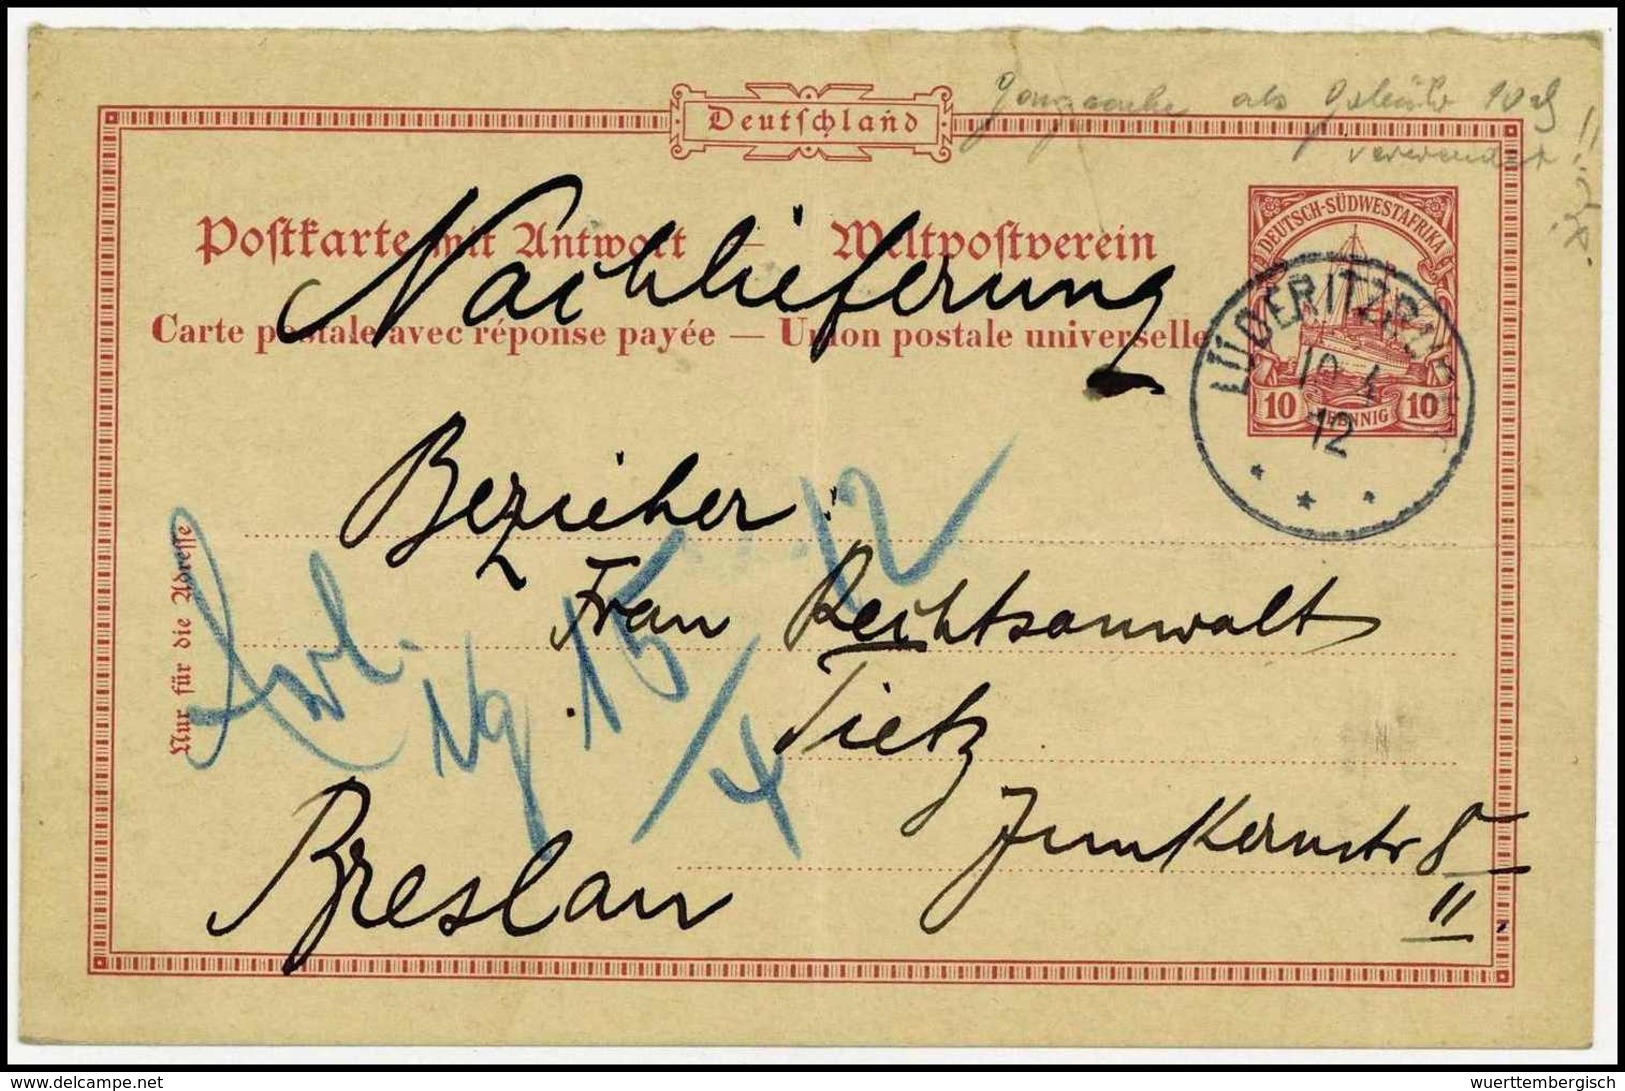 Deutschland
als 10 ₰
verwendet !!
Postkarte mit Antwort — Weltpostverein
Carte postale avec réponse payée — Union postale universelle
DEUTSCH-SÜDWESTAFRIKA
10 PFENNIG 10
LÜDERITZBUCHT
10. 4.
12
* * *
Nachlieferung
Bezieher:
Frau Rechtsanwalt
Tietz
Junkernstr 8
II.
Breslau
Nur für die Adresse
15/4 12
wuerttembergisch
www.delcampe.net